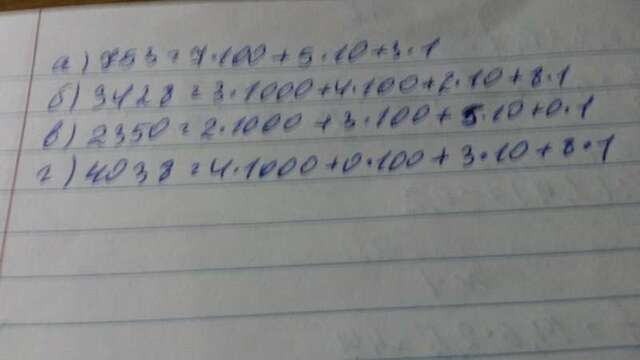 а) 753=7·100+5·10+3·1
б) 3428=3·1000+4·100+2·10+8·1
в) 2350=2·1000+3·100+5·10+0·1
г) 4038=4·1000+0·100+3·10+8·1